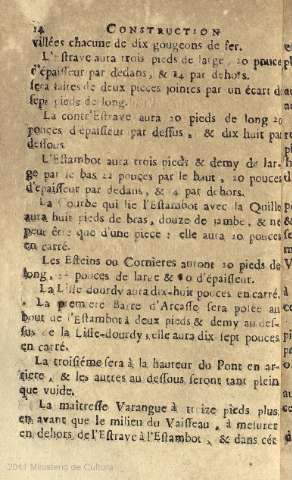 14 CONSTRUCTION
villées chacune de dix gougeons de fer.
L'Estrave aura trois pieds de large, 20 pouces
d'épaisseur par dedans, & 14 par dehors.
sera faites de deux pieces jointes par un écart de
sept pieds de long.
La contr'Estrave aura 20 pieds de long 20
pouces d'épaisseur par dessus, & dix huit par
dessous
L'Estambot aura trois pieds & demy de lar-
ge par le bas 22 pouces par le haut, 20 pouces
d'épaisseur par dedans, & 4 par dehors.
La Courbe qui lie l'Estambot avec la Quille
aura huit pieds de bras, douze de jambe, & ne
peut être que d'une piece: elle aura 20 pouces
en carré.
Les Esteins ou Cornieres auront 20 pieds de
long, pouces de large & 10 d'épaisseur.
La Lisse dourdy aura dix-huit pouces en carré.
La premiere Barre d'Arcasse sera posée au
bout de l'Estambot à deux pieds & demy au des-
sus de la Lisse-dourdy, elle aura dix sept pouces
en carré.
La troisiéme sera à la hauteur du Pont en ar-
riere, & les autres au dessous seront tant plein
que vuide.
La maitresse Varangue à treize pieds plus
en avant que le milieu du Vaisseau, à mesurer
en dehors de l'Estrave à l'Estambot, & dans cét
2011 Ministerio de Cultura